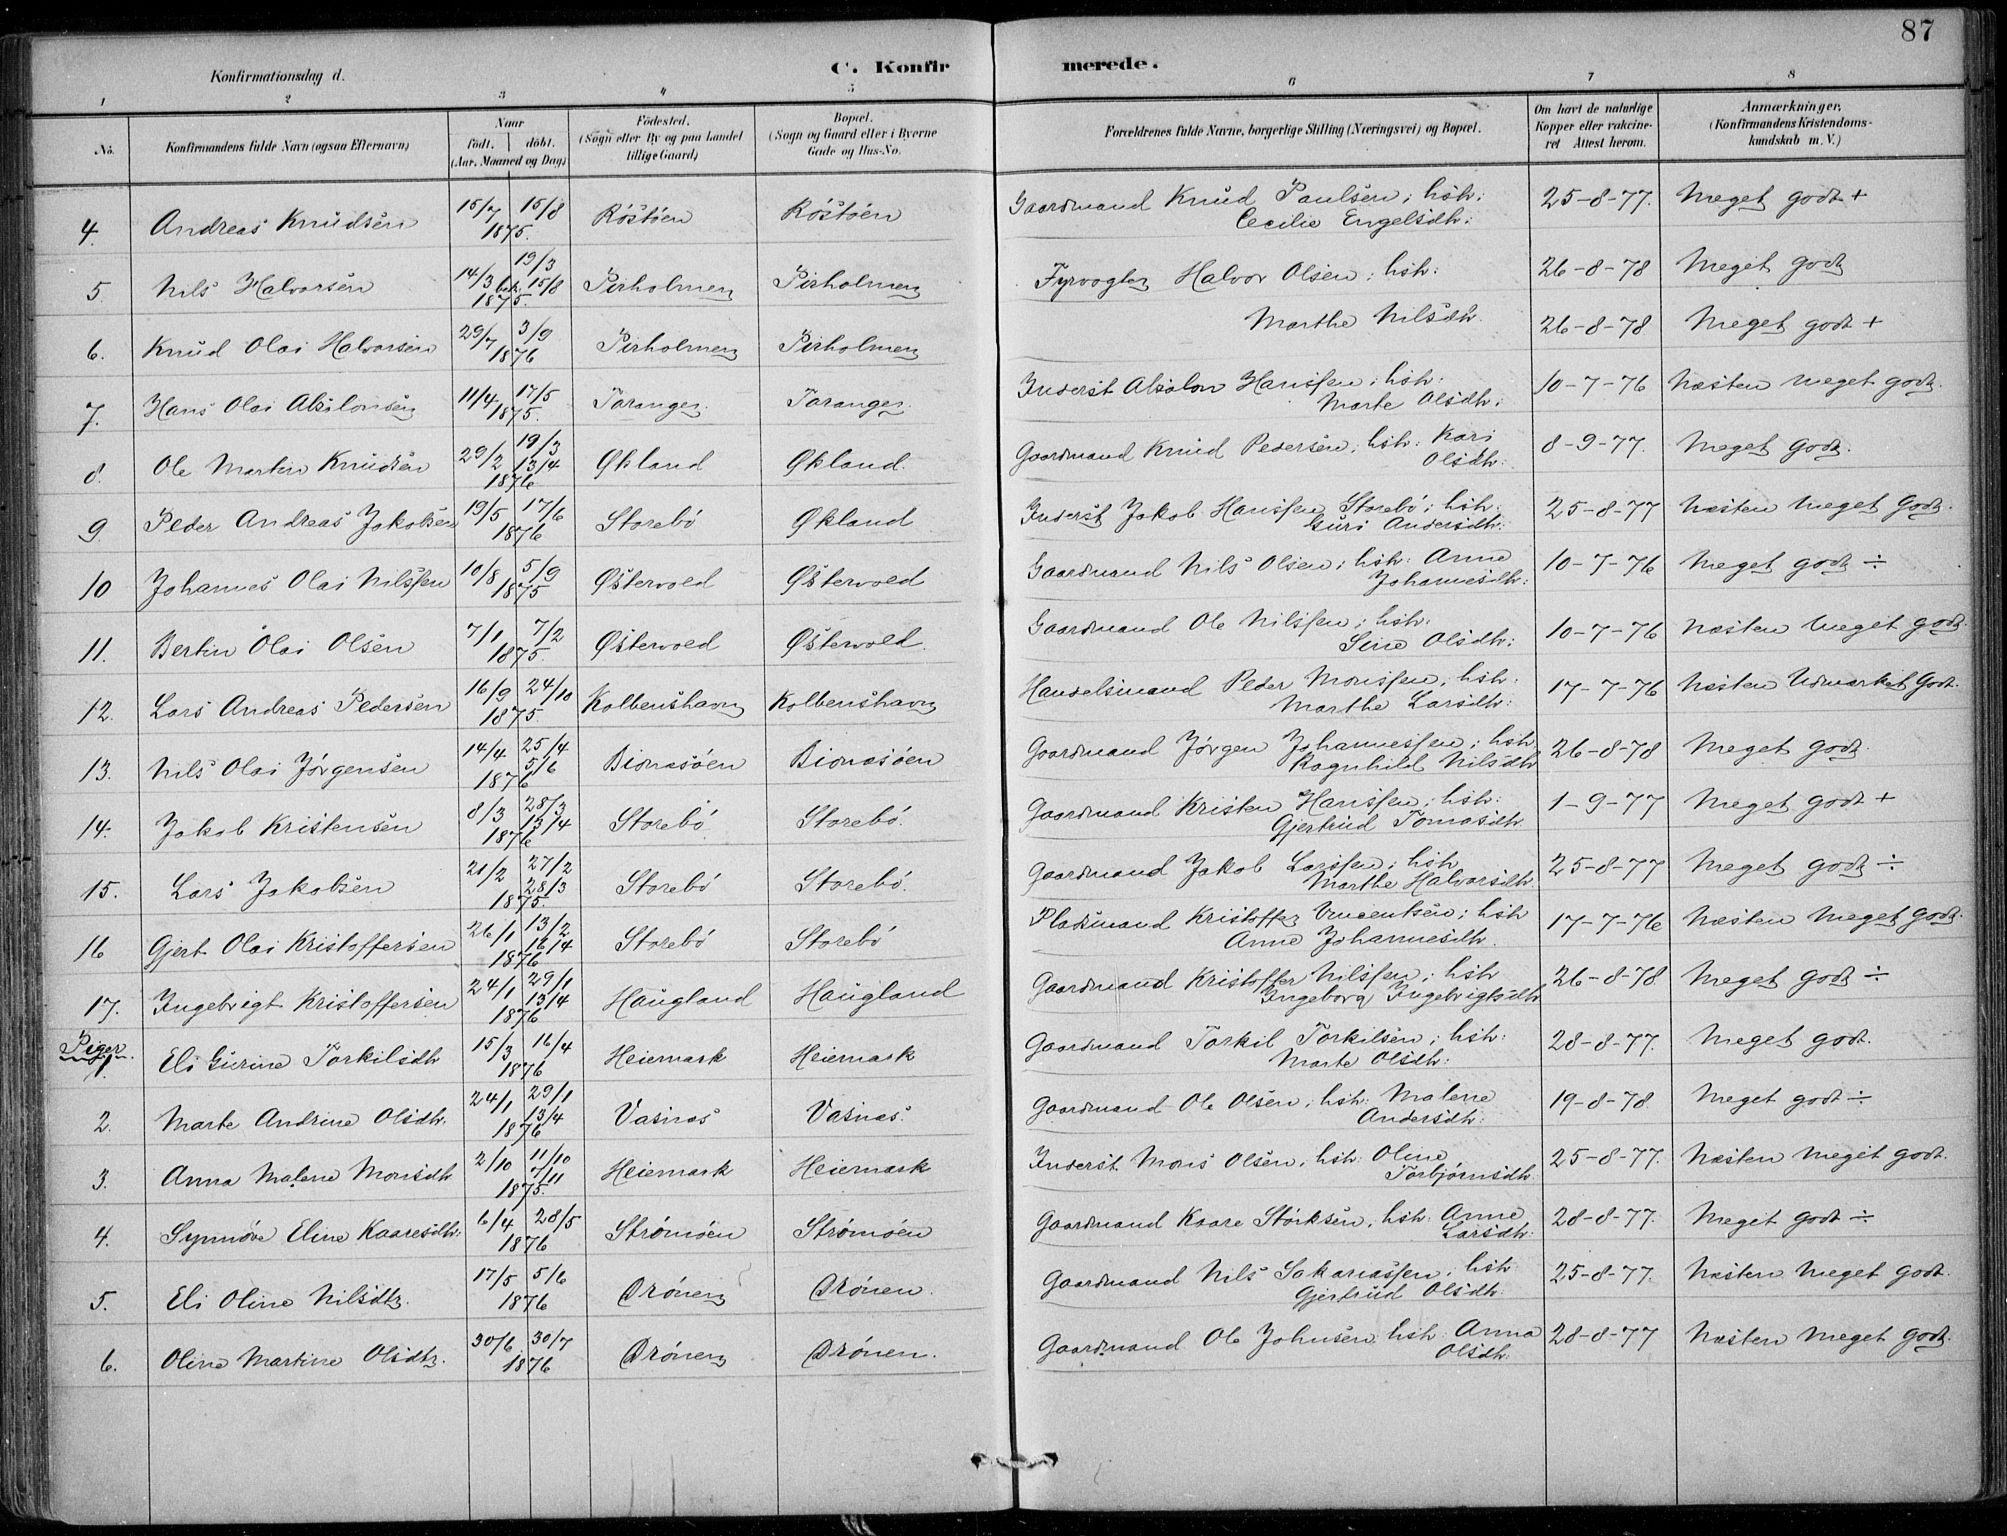 87
Konfirmationsdag d.
C. Konfir
merede.
1 2 3 4 5 6 7 8
No.
Konfirmandens fulde Navn (ogsaa Efternavn)
Naar
födt. döbt.
(Aar, Maaned og Dag)
Födested.
(Sogn eller By og paa Landet
tillige Gaard)
Bopæl.
(Sogn og Gaard eller i Byerne
Gade og Hus-No.
Forældrenes fulde Navne, borgerlige Stilling (Næringsvei) og Bopæl.
Om havt de naturlige
Kopper eller vakcine-
ret Attest herom.
Anmærkninger,
(Konfirmandens Kristendoms-
kundskab m. V.)
4. Andreas Knudsen 15/7 15/8 1875. Röstöen Röstöen Gaardmand Knud Paulsen; hstr: Cecilie Engelsdtr: 25-8-77. Meget godt +
5 Nils Halvorsen 14/3 19/3 bek. 15/8 1875. Pirholmen Pirholmen Fyrvogter Halvor Olsen; hstr: 26-8-78 Meget godt
6. Knud Olai Halvorsen 29/7 3/9 1876 Pirholmen Pirholmen Marthe Nilsdtr. 26-8-78 Meget godt +
7. Hans Olai Absalonsen 11/4 17/5 1875. Toranger. Toranger. Inderst Absalon Hansen; hstr: Marte Olsdtr: 10-7-76 Næsten meget godt.
8. Ole Martin Knudsen 29/2 19/3 13/4 1876 Økland Økland. Gaardmand Knud Pedersen; hstr: Kari Olsdtr: 8-9-77. Meget godt.
9. Peder Andreas Jakobsen 19/5 17/6 1876 Storebö Økland Inderst Jakob Hansen Storebö; hstr: Guri Andersdtr: 25-8-77 Næsten meget godt.
10 Johannes Olai Nilssen 10/8 5/9 1875 Østervold Østervold Gaardmand Nils Olsen; hstr: Anne Johannesdtr: 10-7-76 Meget godt ÷
11. Bertin Olai Olsen 7/1 7/2 1875. Østervold Østervold. Gaardmand Ole Nilssen; hstr: Sine Olsdtr: 10-7-76 Næsten meget godt.
12. Lars Andreas Pedersen 16/9 24/10 1875 Kolbenshavn Kolbenshavn Handelsmand Peder Monssen; hstr: Marthe Larsdtr: 17-7-76 Næsten Udmærket Godt.
13. Nils Olai Jörgensen 14/4 25/4 5/6 1876 Bionesöen Bionesöen Gaardmand Jörgen Johannessen; hstr Ragnhild Nilsdtr 26-8-78 Meget godt.
14. Jakob Kristensen 8/3 28/3 13/4 1876 Storebö Storebö. Gaardmand Kristen Hanssen; hstr: Gjertrud Tomasdtr. 1-9-77 Meget godt +
15. Lars Jakobsen 21/2 27/2 28/3 1875. Storebö Storebö. Gaardmand Jakob Larssen; hstr Marthe Halvorsdtr 25-8-77 Meget godt ÷
16 Gjert Olai Kristoffersen 26/1 13/2 16/4 1876 Storebö Storebö Pladsmand Kristoffer Vincentsen; hstr Anne Johannesdtr. 17-7-76 Næsten Meget godt.
17. Ingebrigt Kristoffersen 24/1 29/1 13/4 1876 Haugland Haugland Gaardmand Kristoffer Nilssen; hstr Ingeborg Ingebrigtsdtr 26-8-78 Meget godt ÷
Piger.
1. Eli Gurine Torkilsdtr 15/3 16/4 1876 Heiemark Heiemark Gaardmand Torkil Torkilsen; hstr: Marte Olsdtr: 28-8-77. Meget godt.
2. Marte Andrine Olsdtr. 24/1 29/1 13/4 1876 Vasnes Vasnes. Gaardmand Ole Olsen; hstr: Malene Andersdtr: 19-8-78 Meget godt ÷
3. Anna Malene Monsdtr 2/10 11/10 7/11 1875. Heiemark Heiemark Inderst Mons Olsen; hstr: Oline Torbjørnsdtr. 25-8-77. Næsten meget godt.
4. Synnöve Eline Kaaresdtr: 6/4 28/5 1876 Strømöen Strømöen Gaardmand Kaare Störksen, hstr: Anne Larsdtr: 28-8-77. Meget godt ÷
5. Eli Oline Nilsdtr. 17/5 5/6 1876 Drönen Drönen. Gaardmand Nils Sakariassen; hstr. Gjertrud Olsdtr: 25-8-77. Næsten Meget godt.
6. Oline Martine Olsdtr. 30/6 30/7 1876 Drönen Drönen. Gaardmand Ole Johnsen; hstr: Anna Olsdtr. 28-8-77 Næsten meget godt.